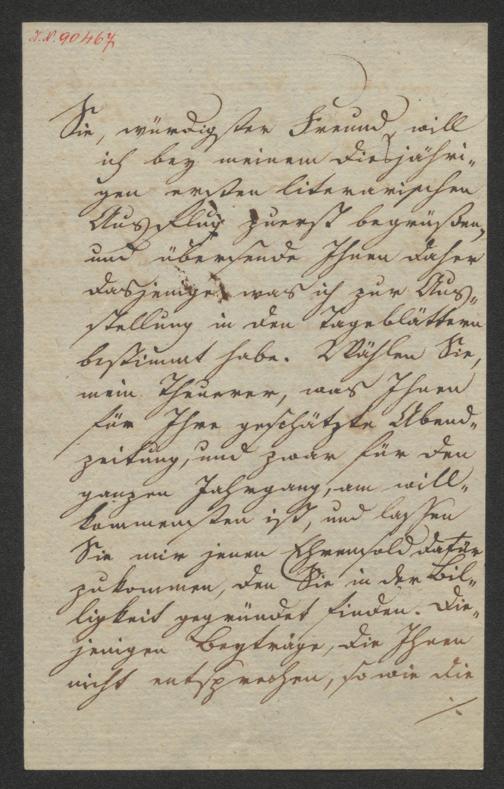 I. N. 90467
Sie, würdigster Freund, will
ich bey meinem diesjähri-
gen ersten literarischen
Ausflug zuerst begrüßen,
und übersende Ihnen daher
dasjenige, was ich zur Aus-
stellung in den Tageblättern
bestimmt habe. Wählen Sie,
mein Theurer, was Ihnen
für Ihre geschätzte Abend-
zeitung, und zwar für den
ganzen Jahrgang, am will-
kommensten ist, und lassen
Sie mir jenen Ehrensold dafür
zukommen, den Sie in der Bil-
ligkeit gegründet finden. Die-
jenigen Beyträge, die Ihnen
nicht entsprechen, so wie die
./.